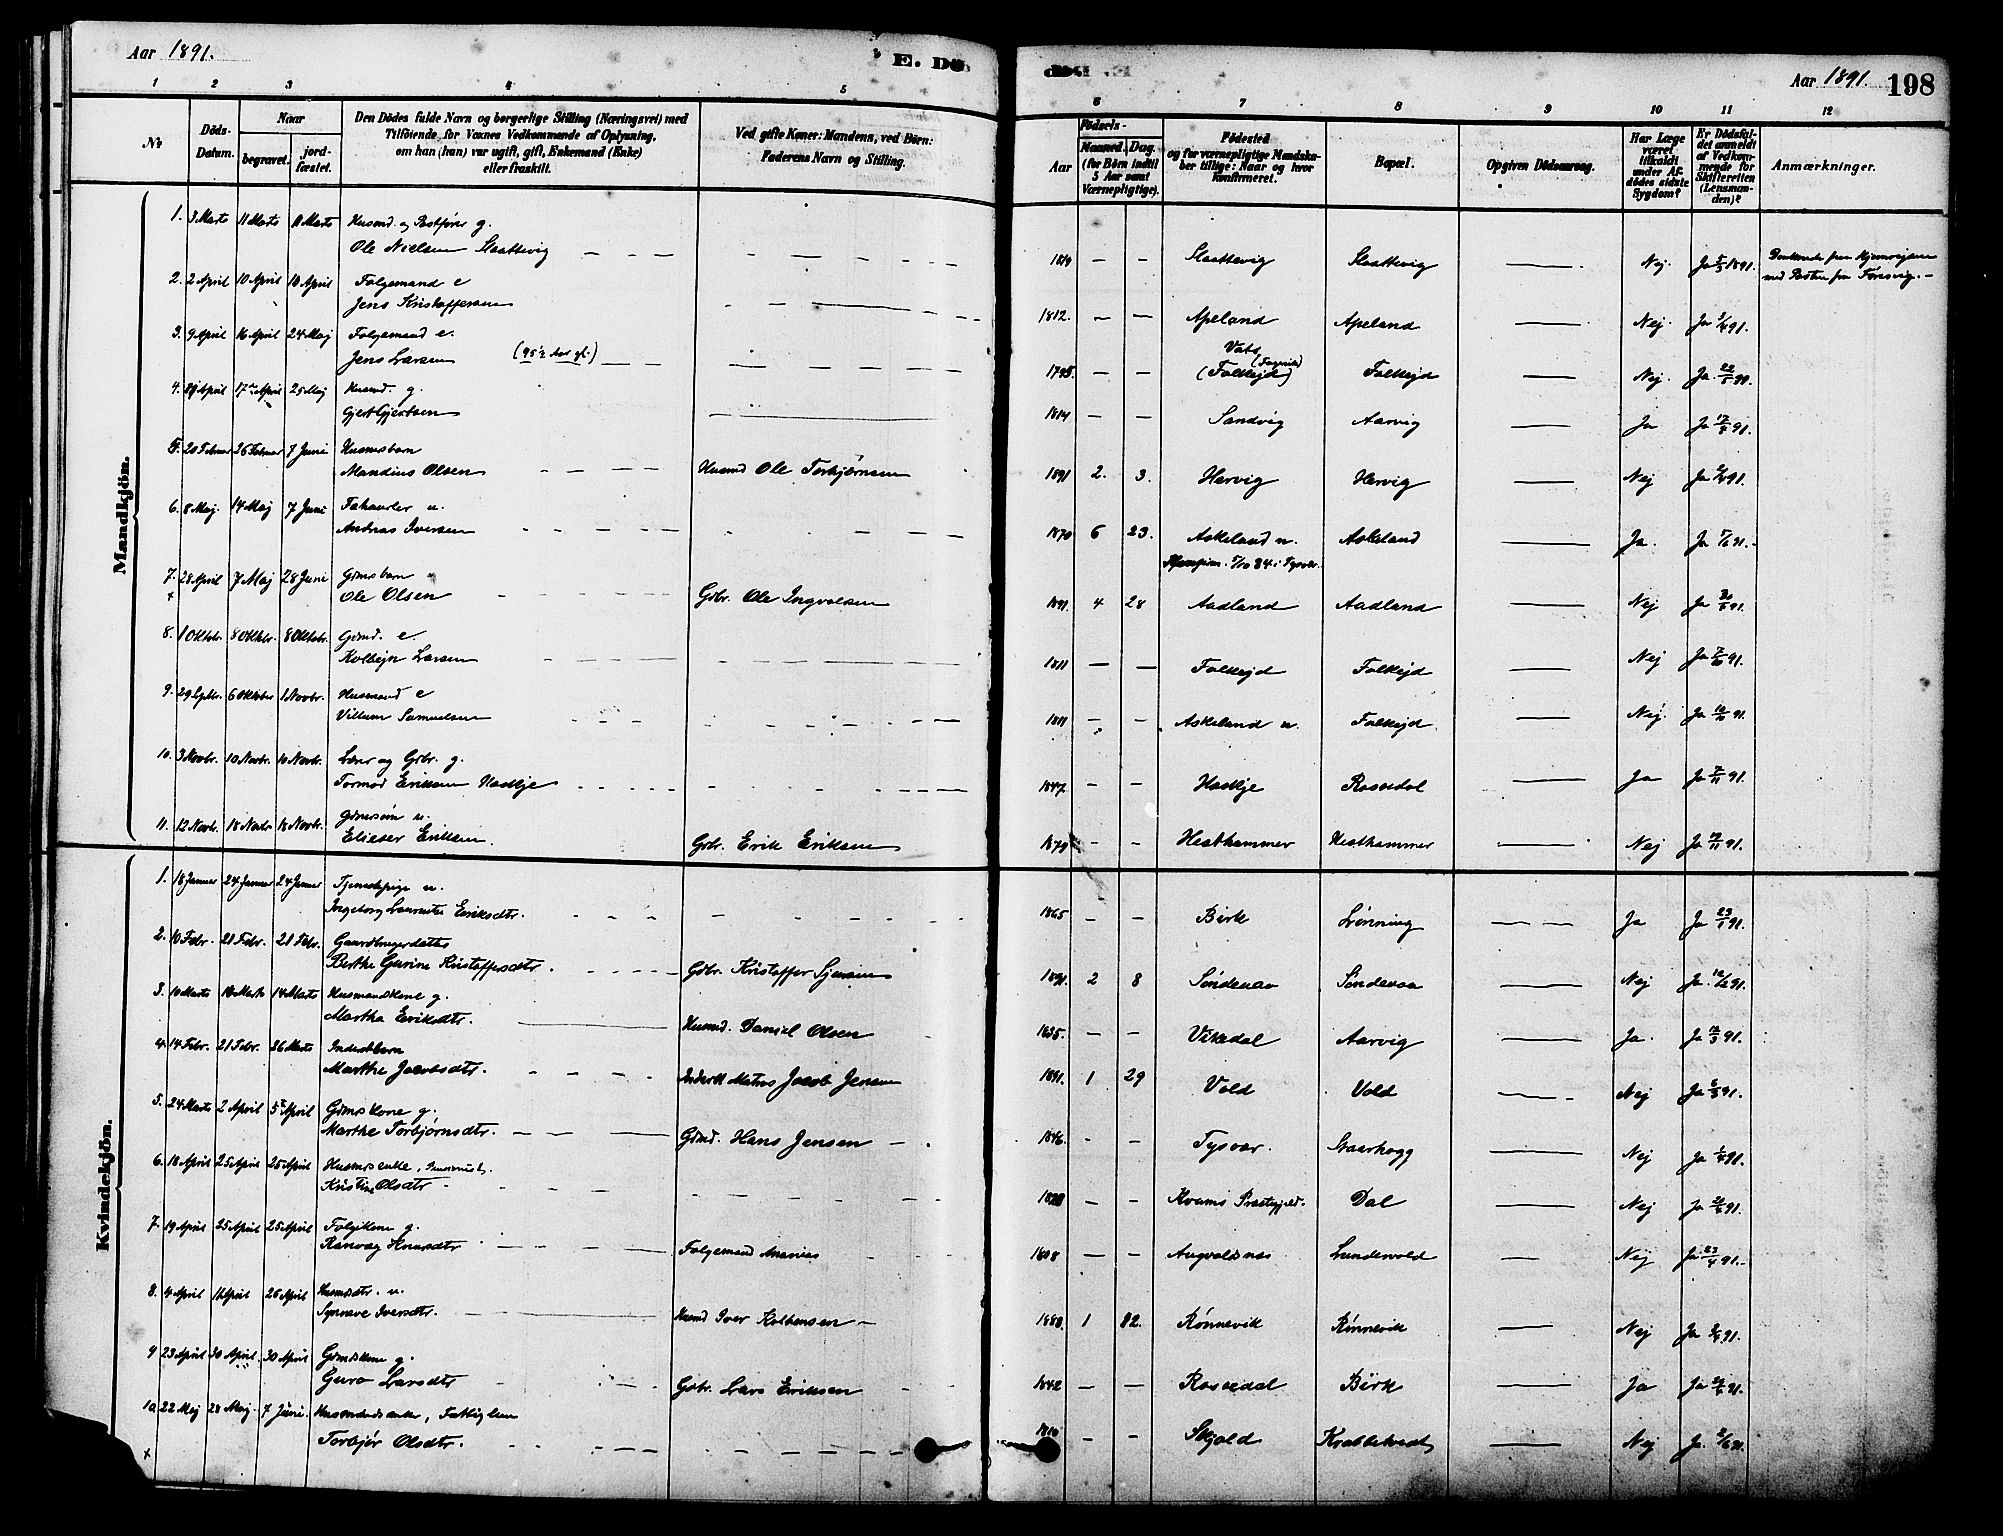 Aar 1891.
E. Dö
Aar 1891. 198
1 2 3 4 5 6 7 8 9 10 11 12
No
Döds-Datum.
Naar
begravet.
jord-fæstet.
Den Dödes fulde Navn og borgerlige Stilling (Næringsvei) med
Tilföiende for Voxnes Vedkommende af Oplysning,
om han (hun) var ugift, gift, Enkemand (Enke)
eller fraskilt.
Ved gifte Koner: Mandens, ved Börn:
Faderens Navn og Stilling.
Födsels-
Aar
Maaned. Dag.
(for Börn indtil
5 Aar samt
Værnepligtige).
Födested
og for værnepligtige Mandska-
ber tillige: Naar og hvor
konfirmeret.
Bopæl.
Opgiven Dödsaarsag.
Har Læge
været
tilkaldt
under Af-
dödes sidste
Sygdom?
Er Dödsfal-
det anmeldt
af Vedkom-
mende for
Skifteretten
(Lensman-
den)?
Anmærkninger.
Mandkjön.
1. 3 Marts 11 Marts 11 Marts Husmd. og Postfører g.
Ole Nielsen Slaattevig 1819 — — Slaattevig Slaattevig — Nej. Ja 5/3 1891.
med Posten fra Førresvig.
2. 2 April 10 April 10 April Følgemand e
Jens Kristoffersen 1812. — — Apeland Apeland — Nej. Ja 91.
3. 9 April 16 April 24 Maj Følgemand e.
Jens Larsen (95½ Aar gl.) 1795. — — Vats (Falkejd) Falkejd — Nej. Ja 22/5 91.
4. April 17de April 25 Maj Husmd. g.
Gjert Gjertsen 1814 — — Sandvig Aarvig — Ja Ja 17/4 91.
5. 20 Februar 26 Februar 7 Juni Husmsbarn
Mandius Olsen Husmd Ole Torbjørnsen 1891 2. 3. Hervig Hervig — Nej Ja 91.
6. 8 Maj. 14 Maj 7 Juni u.
Andreas Iversen 1870 6 23. Askeland n. Askeland — Ja. Ja 91.
84 i Tysvær.
7. 28 April 7 Maj 28 Juni Gdmsbarn
x Ole Olsen Gdbr. Ole Ingvalsen 1891. 4 28 Aadland Aadland — Nej Ja 91.
8. 1 Oktbr. 8 Oktbr. 8 Oktobr. Gdmd. e.
Kolbejn Larsen 1811 — — Falkejd Falkejd — Nej Ja 7/10 91.
9. 29 Septbr. 6 Oktober 1 Novbr. Husmand e
Villum Samuelsen 1811 — — Askeland n. Falkejd. — Nej. Ja 91.
10. 3 Novbr. 10 Novbr. 10 Novbr. Lærer og Gdbr. g.
Tormod Eriksen Haslje 1847. — — Haslje Rossedal — Ja Ja 7/11 91.
11. 12 Novbr. 18 Novbr 18 Novbr. Gdmssøn u.
Elieser Eriksen. Gdbr. Erik Eriksen 1879 — — Hesthammer Hesthammer — Nej Ja 91.
Kvindekjön.
1. 18 Januar 24 Januar 24 Januar Tjenestepige u.
Ingeborg Laurentse Eriksdtr. 1865 — — Birk Lønning — Ja Ja 23/1 91.
2. 10 Febr. 21 Febr. 21 Febr. Gaardbrugerdatter
Berthe Gurine Kristoffersdtr. Gdbr. Kristoffer 1891. 2 8 Søndenaa Søndenaa — Nej Ja. 91.
3. 10 Marts 14 Marts 14 Marts Husmandskone g.
Martha Eriksdtr. Husmd. Daniel Olsen 1835. — — Vikedal Aarvig — Ja. Ja 91.
4. 14 Febr. 21 Febr. 26 Marts Inderstbarn
Marthe Jacobsdtr. Inderst Jacob Jensen 1891. 1 29 Vold Vold — Nej Ja 91.
5. 24 Marts 2 April 5te April Gdmskone g.
Marthe Torbjørnsdtr. Gdmd. Hans Jensen 1846. — — Tysvær. — Nej Ja 1/4 91.
6. 18 April 25 April 25 April Husmsenke,
Kristine Olsdtr. — — Kvams Præstegjeld. Dal — Nej Ja 91.
7. 19 April 25 April 25 April Følgekone g.
Ranvæg Knutsdtr Følgemand Ananias 1808 — — Augvaldsnæs Lundevold — Nej Ja 23/4 91.
8. 4 April 11 April 26 April Husmsdtr. u.
Synneve Iversdtr. Husmd Iver Kolbensen 1888. 1 22. Rønnevik Rønnevik — Nej Ja 91.
9 23 April 30 April 30 April Gdmdskone g.
Guro Larsdtr Gdbr. Lars Eriksen 1842 — — Rossedal Birk — Ja Ja 91.
10 22 Maj 28 Maj. 7 Juni. Husmandsenke, Fattiglem
x Torbjør Olsdtr. 1810 — — Skjold Krabbetvedt — Nej Ja 91.